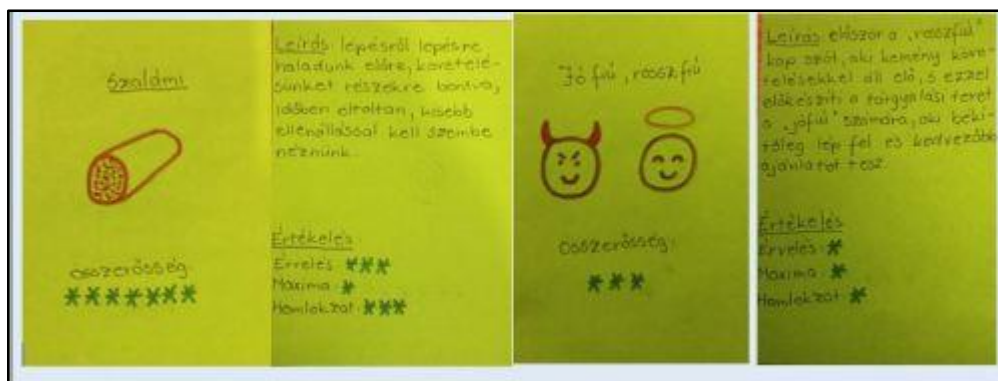 Szalámi
összerősség
*******
Leírás: lépésről lépésre
haladunk előre, követelé-
sünket részekre bontva,
időben eltoltan, kisebb
ellenállással kell szembe
néznünk.
Értékelés
Érvelés: ***
Maxima: *
Homlokzat: ***
Jó fiú, rossz fiú
összerősség:
***
Leírás először a „rosszfiú”
kap szót, aki kemény köve-
telésekkel áll elő, s ezzel
előkészíti a tárgyalási teret
a „jófiú” számára, aki béki-
tőleg lép fel és kedvezőbb
ajánlatot tesz.
Értékelés
Érvelés: *
Maxima: *
Homlokzat: *